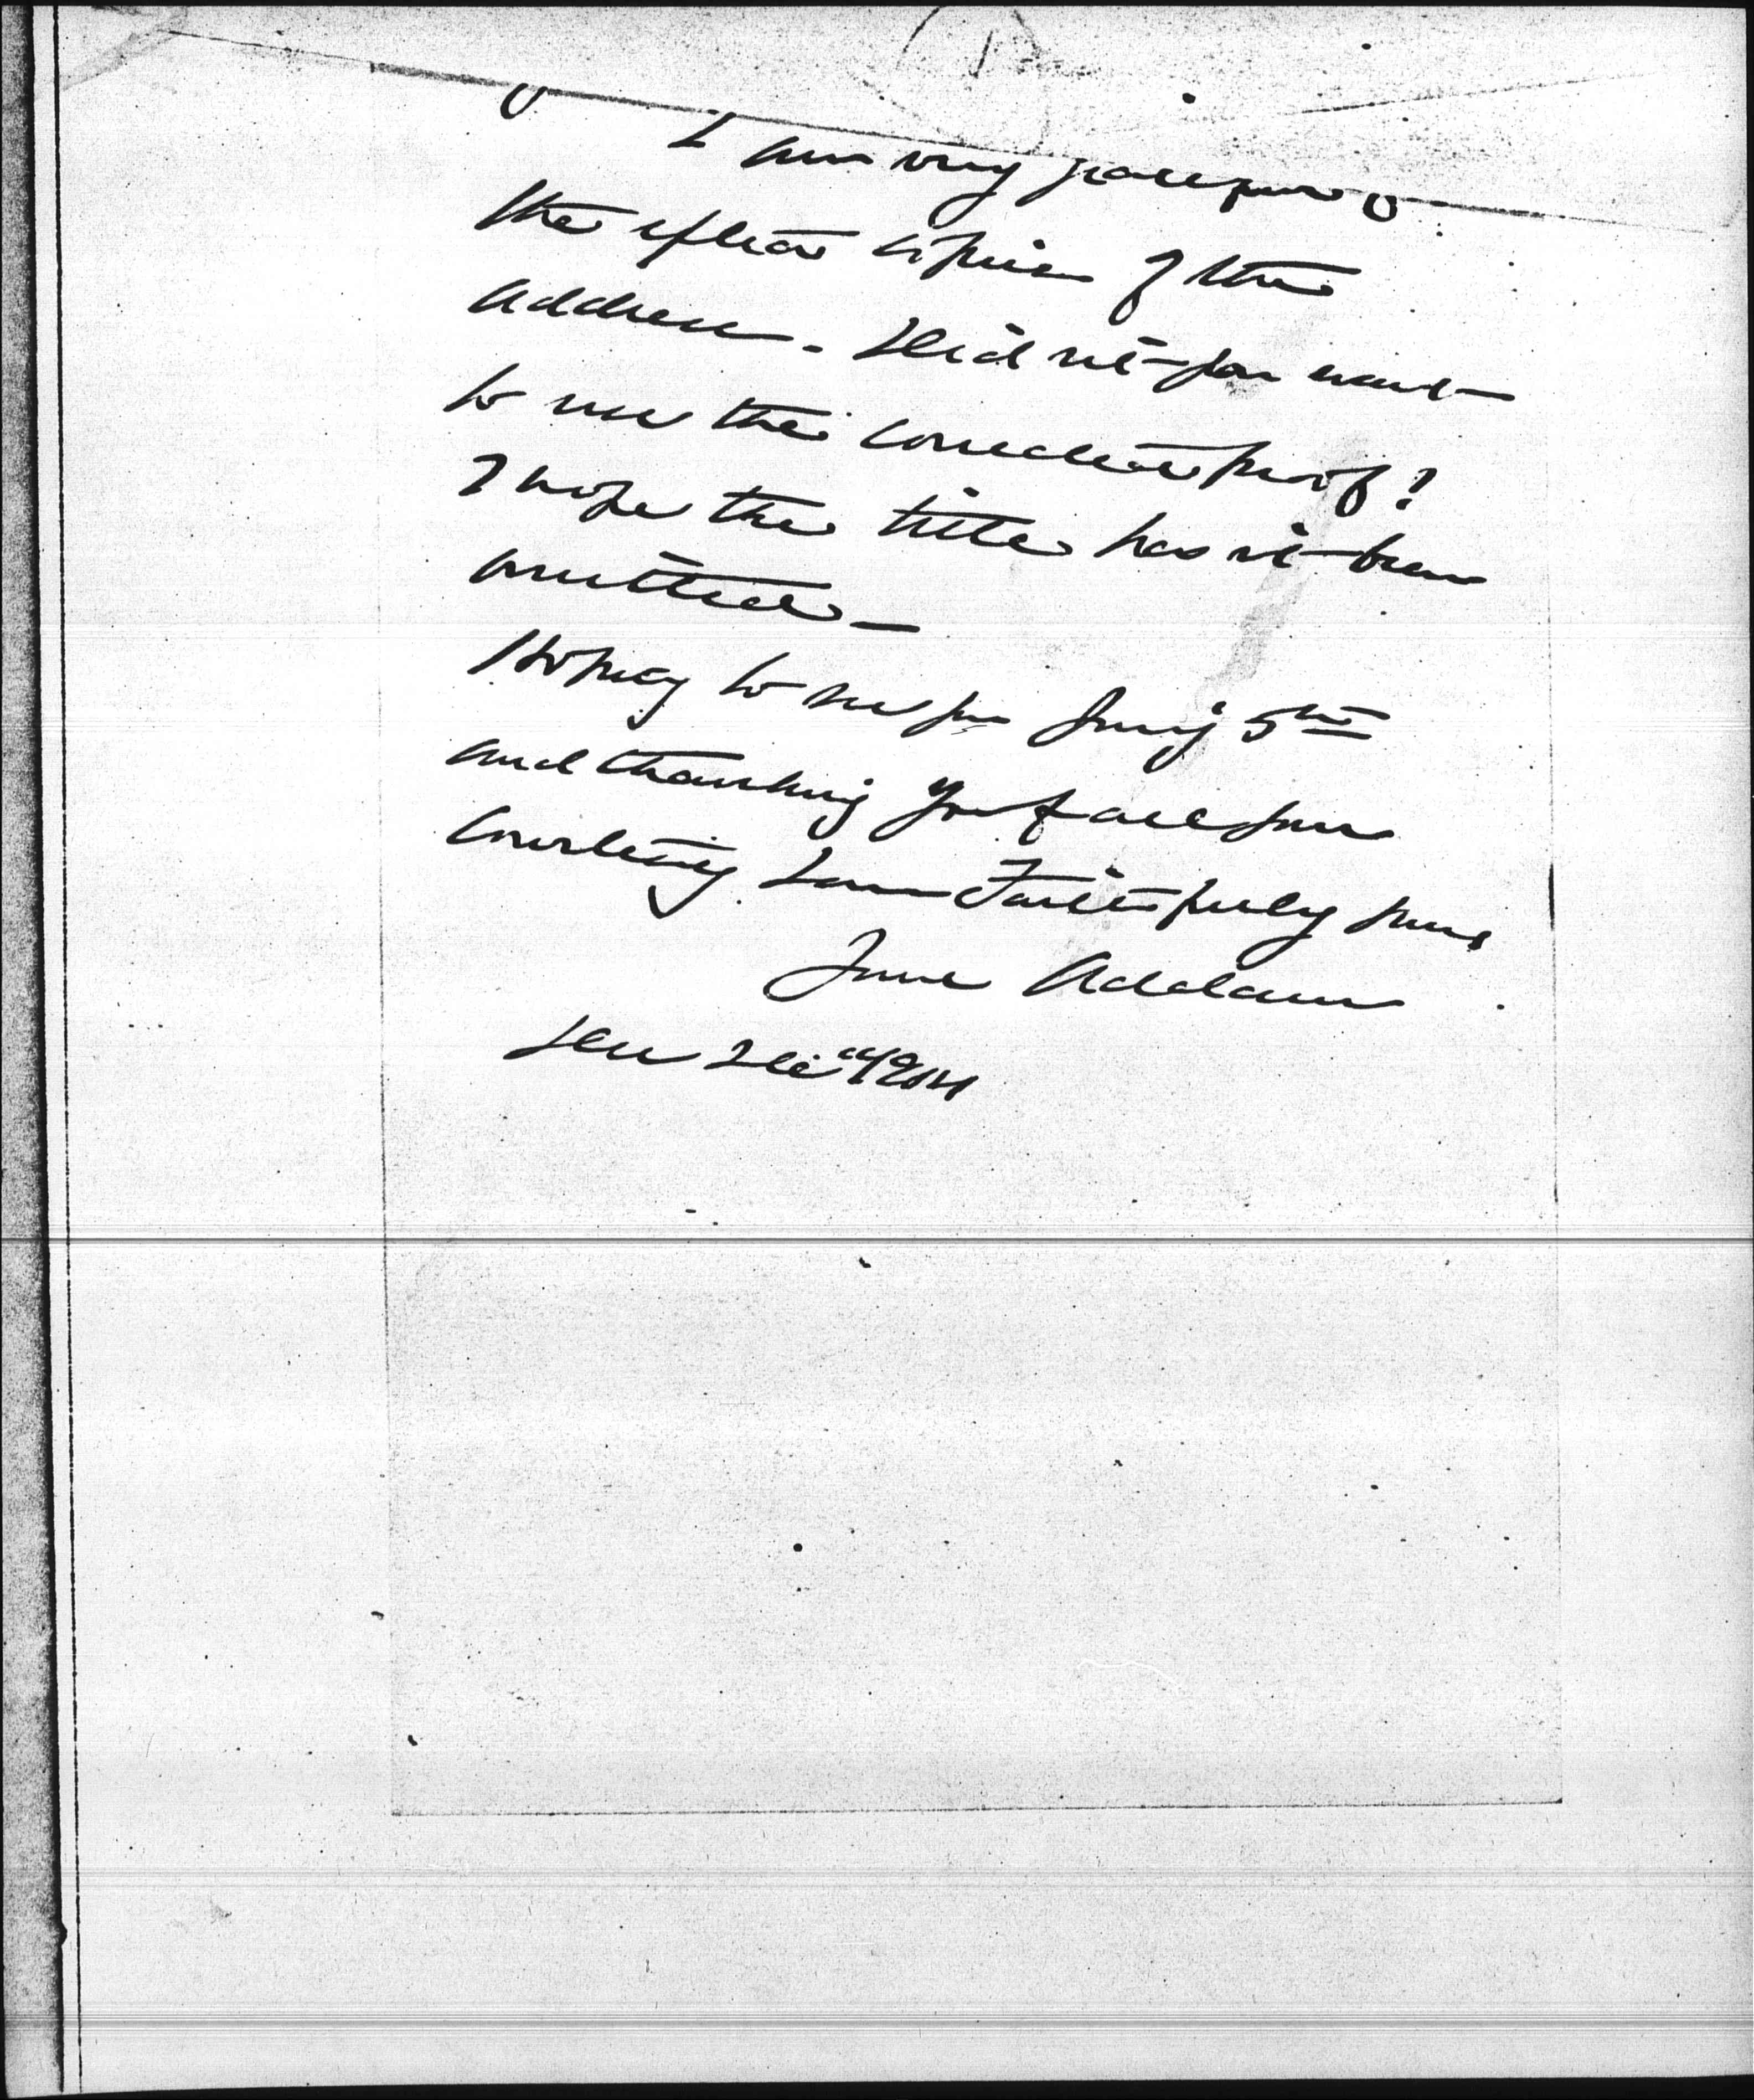 I am very grateful
the extra copies of the
address. Did not you want
to use the corrected proof?
I hope the title has not been
omitted—
Hoping to see you Jan'y 5th
and thanking you for all your
courtesy. I am Faithfully yours
Jane Addams
Dec 1904